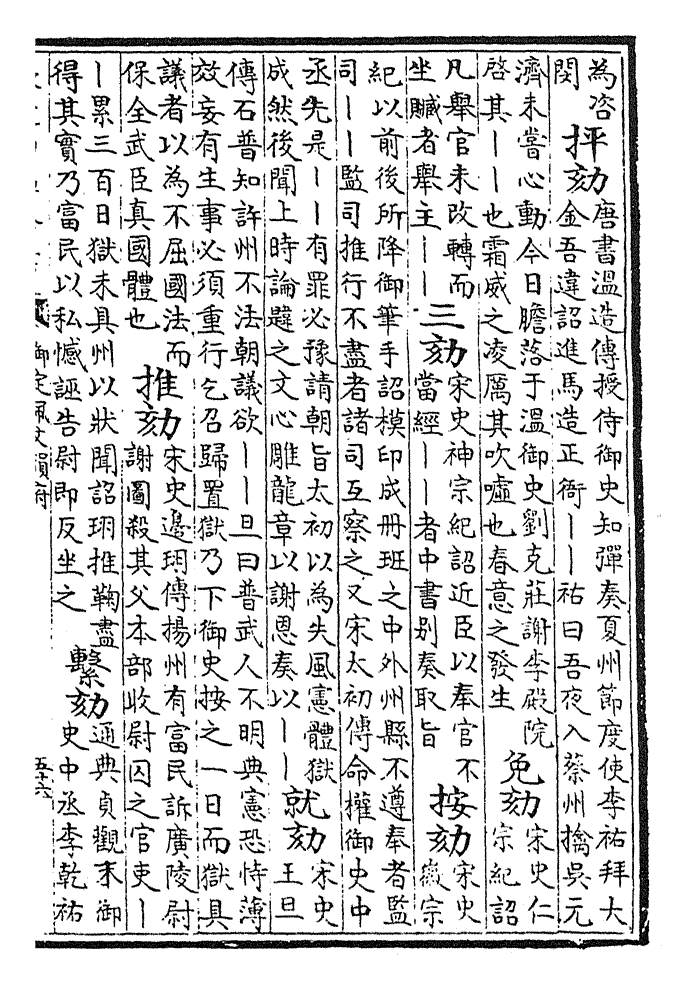 為咨
閔
抨劾
唐書溫造傳授侍御史知彈奏夏州節度使李祐拜大
金吾違詔進馬造正衙丨丨祐曰吾夜入蔡州擒吳元
濟未嘗心動今日膽落于溫御史劉克莊謝李殿院
啓其丨丨也霜威之凌厲其吹噓也春意之發生
免劾
宋史仁
宗紀詔
凡舉官未改轉而
坐贓者舉主丨丨
三劾
宋史神宗紀詔近臣以奉官不
當經丨丨者中書别奏取旨
按劾
宋史
徽宗
紀以前後所降御筆手詔模印成冊班之中外州縣不遵奉者監
司丨丨監司推行不盡者諸司互察之又宋太初傳命權御史中
丞先是丨丨有罪必豫請朝旨太初以為失風憲體獄
成然後聞上時論韙之文心雕龍章以謝恩奏以丨丨
就劾
宋史
王旦
傳石普知許州不法朝議欲丨丨旦曰普武人不明典憲恐恃薄
效妄有生事必須重行乞召歸置獄乃下御史按之一日而獄具
議者以為不屈國法而
保全武臣真國體也
推劾
宋史邊珝傳揚州有富民訴廣陵尉
謝圖殺其父本部收尉囚之官吏丨
丨累三百日獄未具州以狀聞詔珝推鞫盡
得其實乃富民以私憾誣告尉即反坐之
繫劾
通典貞觀末御
史中丞李乾祐
御定佩文韻府
五十六